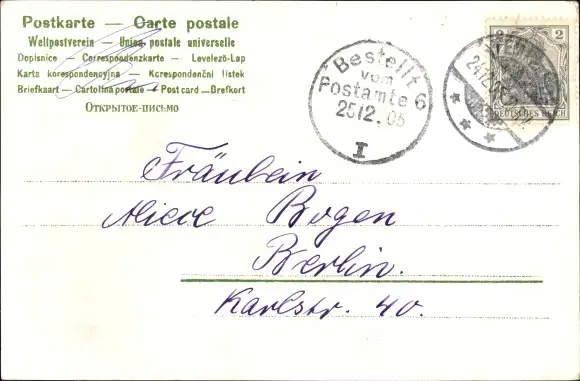 Postkarte — Carte postale
Weltpostverein — Union postale universelle
Dopisnice — Correspondenzkarte — Levelező-Lap
Karta korespondencyjna — Korespondenční lístek
Briefkaart — Cartolina postale — Post card — Brefkort
Открытое-письмо
Bestellt
vom
Postamte 6
25/2.05
I
2 2
DEUTSCHES REICH
Fräulein
Bogen
Berlin.
Karlstr. 40.